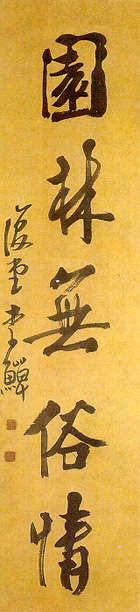 園林無俗情
復堂李鱓